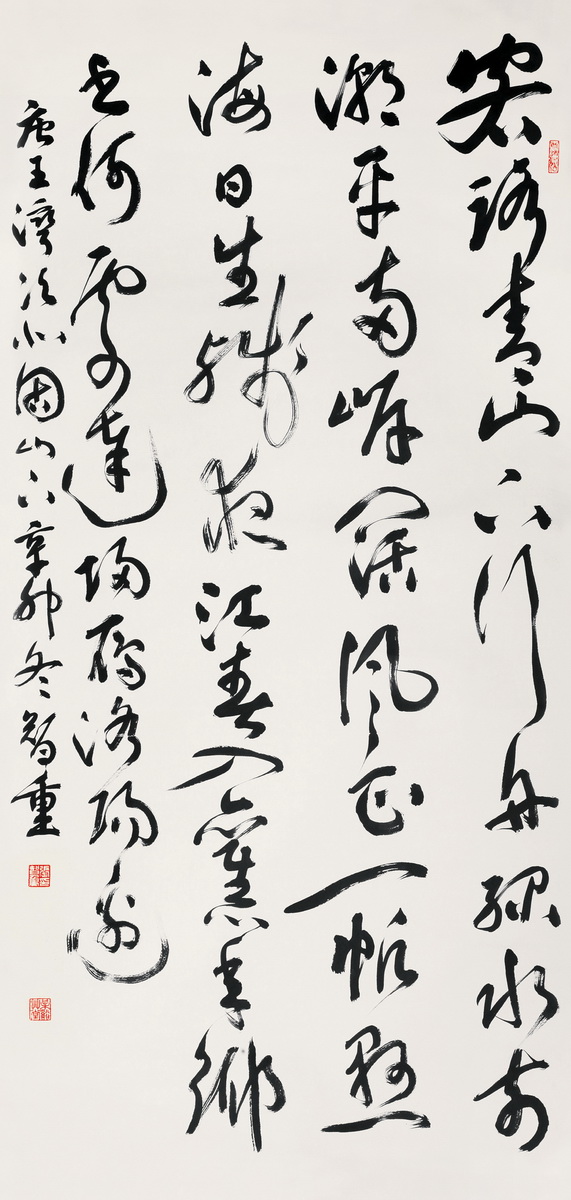 客路青山下行舟綠水前
潮平兩岸闊風正一帆懸
海日生殘夜江春入舊年鄉
書何處達歸雁洛陽邊
唐王灣次北固山下辛卯冬智重